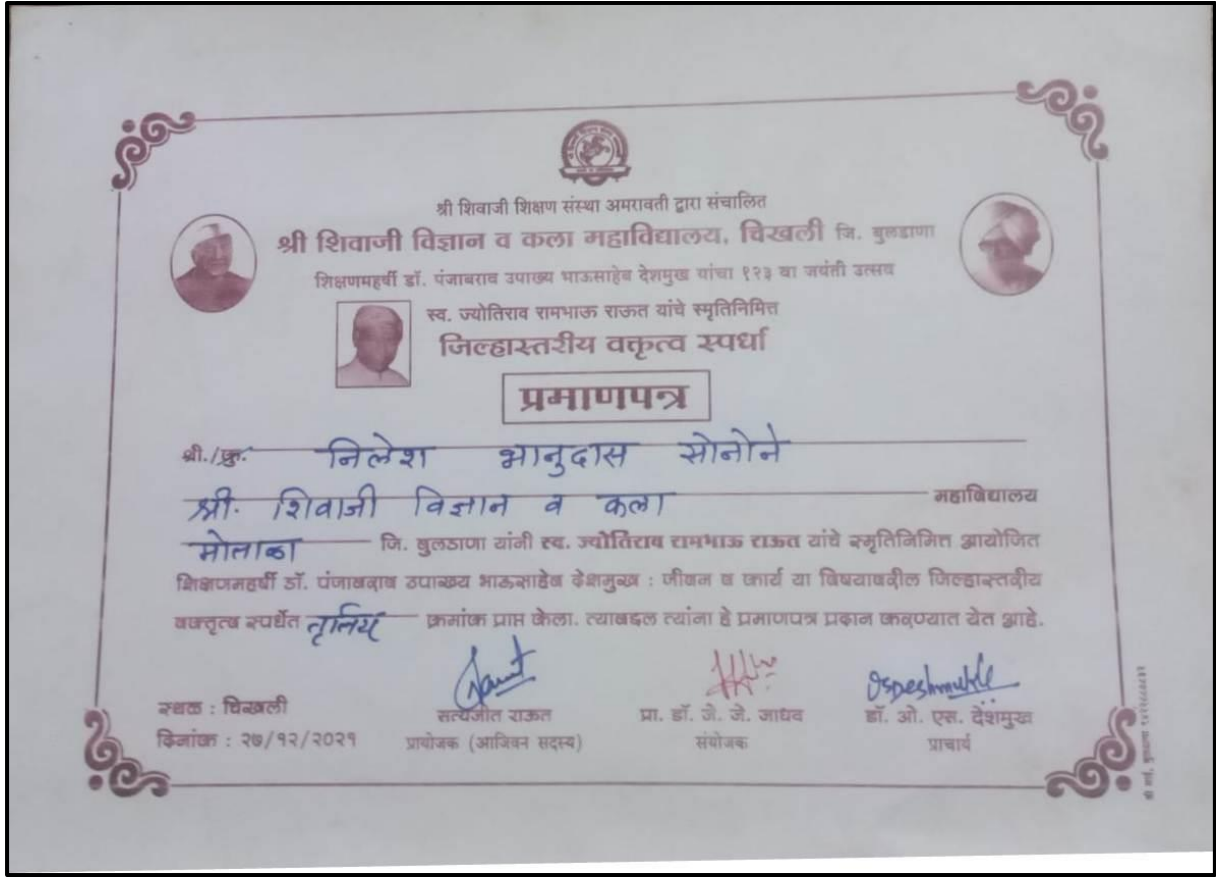 श्री शिवाजी शिक्षण संस्था अमरावती द्वारा संचालित
श्री शिवाजी विज्ञान व कला महाविद्यालय, चिखली जि. बुलडाणा
शिक्षणमहर्षी डॉ. पंजाबराव उपाख्य भाऊसाहेब देशमुख यांचा १२३ वा जयंती उत्सव
स्व. ज्योतिराव रामभाऊ राऊत यांचे स्मृतिनिमित्त
जिल्हास्तरीय वक्तृत्व स्पर्धा
प्रमाणपत्र
श्री./कु. निलेश भानुदास सोनोने
श्री. शिवाजी विज्ञान व कला महाविद्यालय
मोताळा जि. बुलडाणा यांनी स्व. ज्योतिराव रामभाऊ राऊत यांचे स्मृतिनिमित्त आयोजित
शिक्षणमहर्षी डॉ. पंजाबराव उपाख्य भाऊसाहेब देशमुख : जीवन व कार्य या विषयावरील जिल्हास्तरीय
वक्तृत्व स्पर्धेत तृतिय क्रमांक प्राप्त केला. त्याबद्दल त्यांना हे प्रमाणपत्र प्रदान करण्यात येत आहे.
स्थळ : चिखली
दिनांक : २७/१२/२०२१
सत्यजीत राऊत
प्रायोजक (आजिवन सदस्य)
प्रा. डॉ. जे. जे. जाधव
संयोजक
डॉ. ओ. एस. देशमुख
प्राचार्य